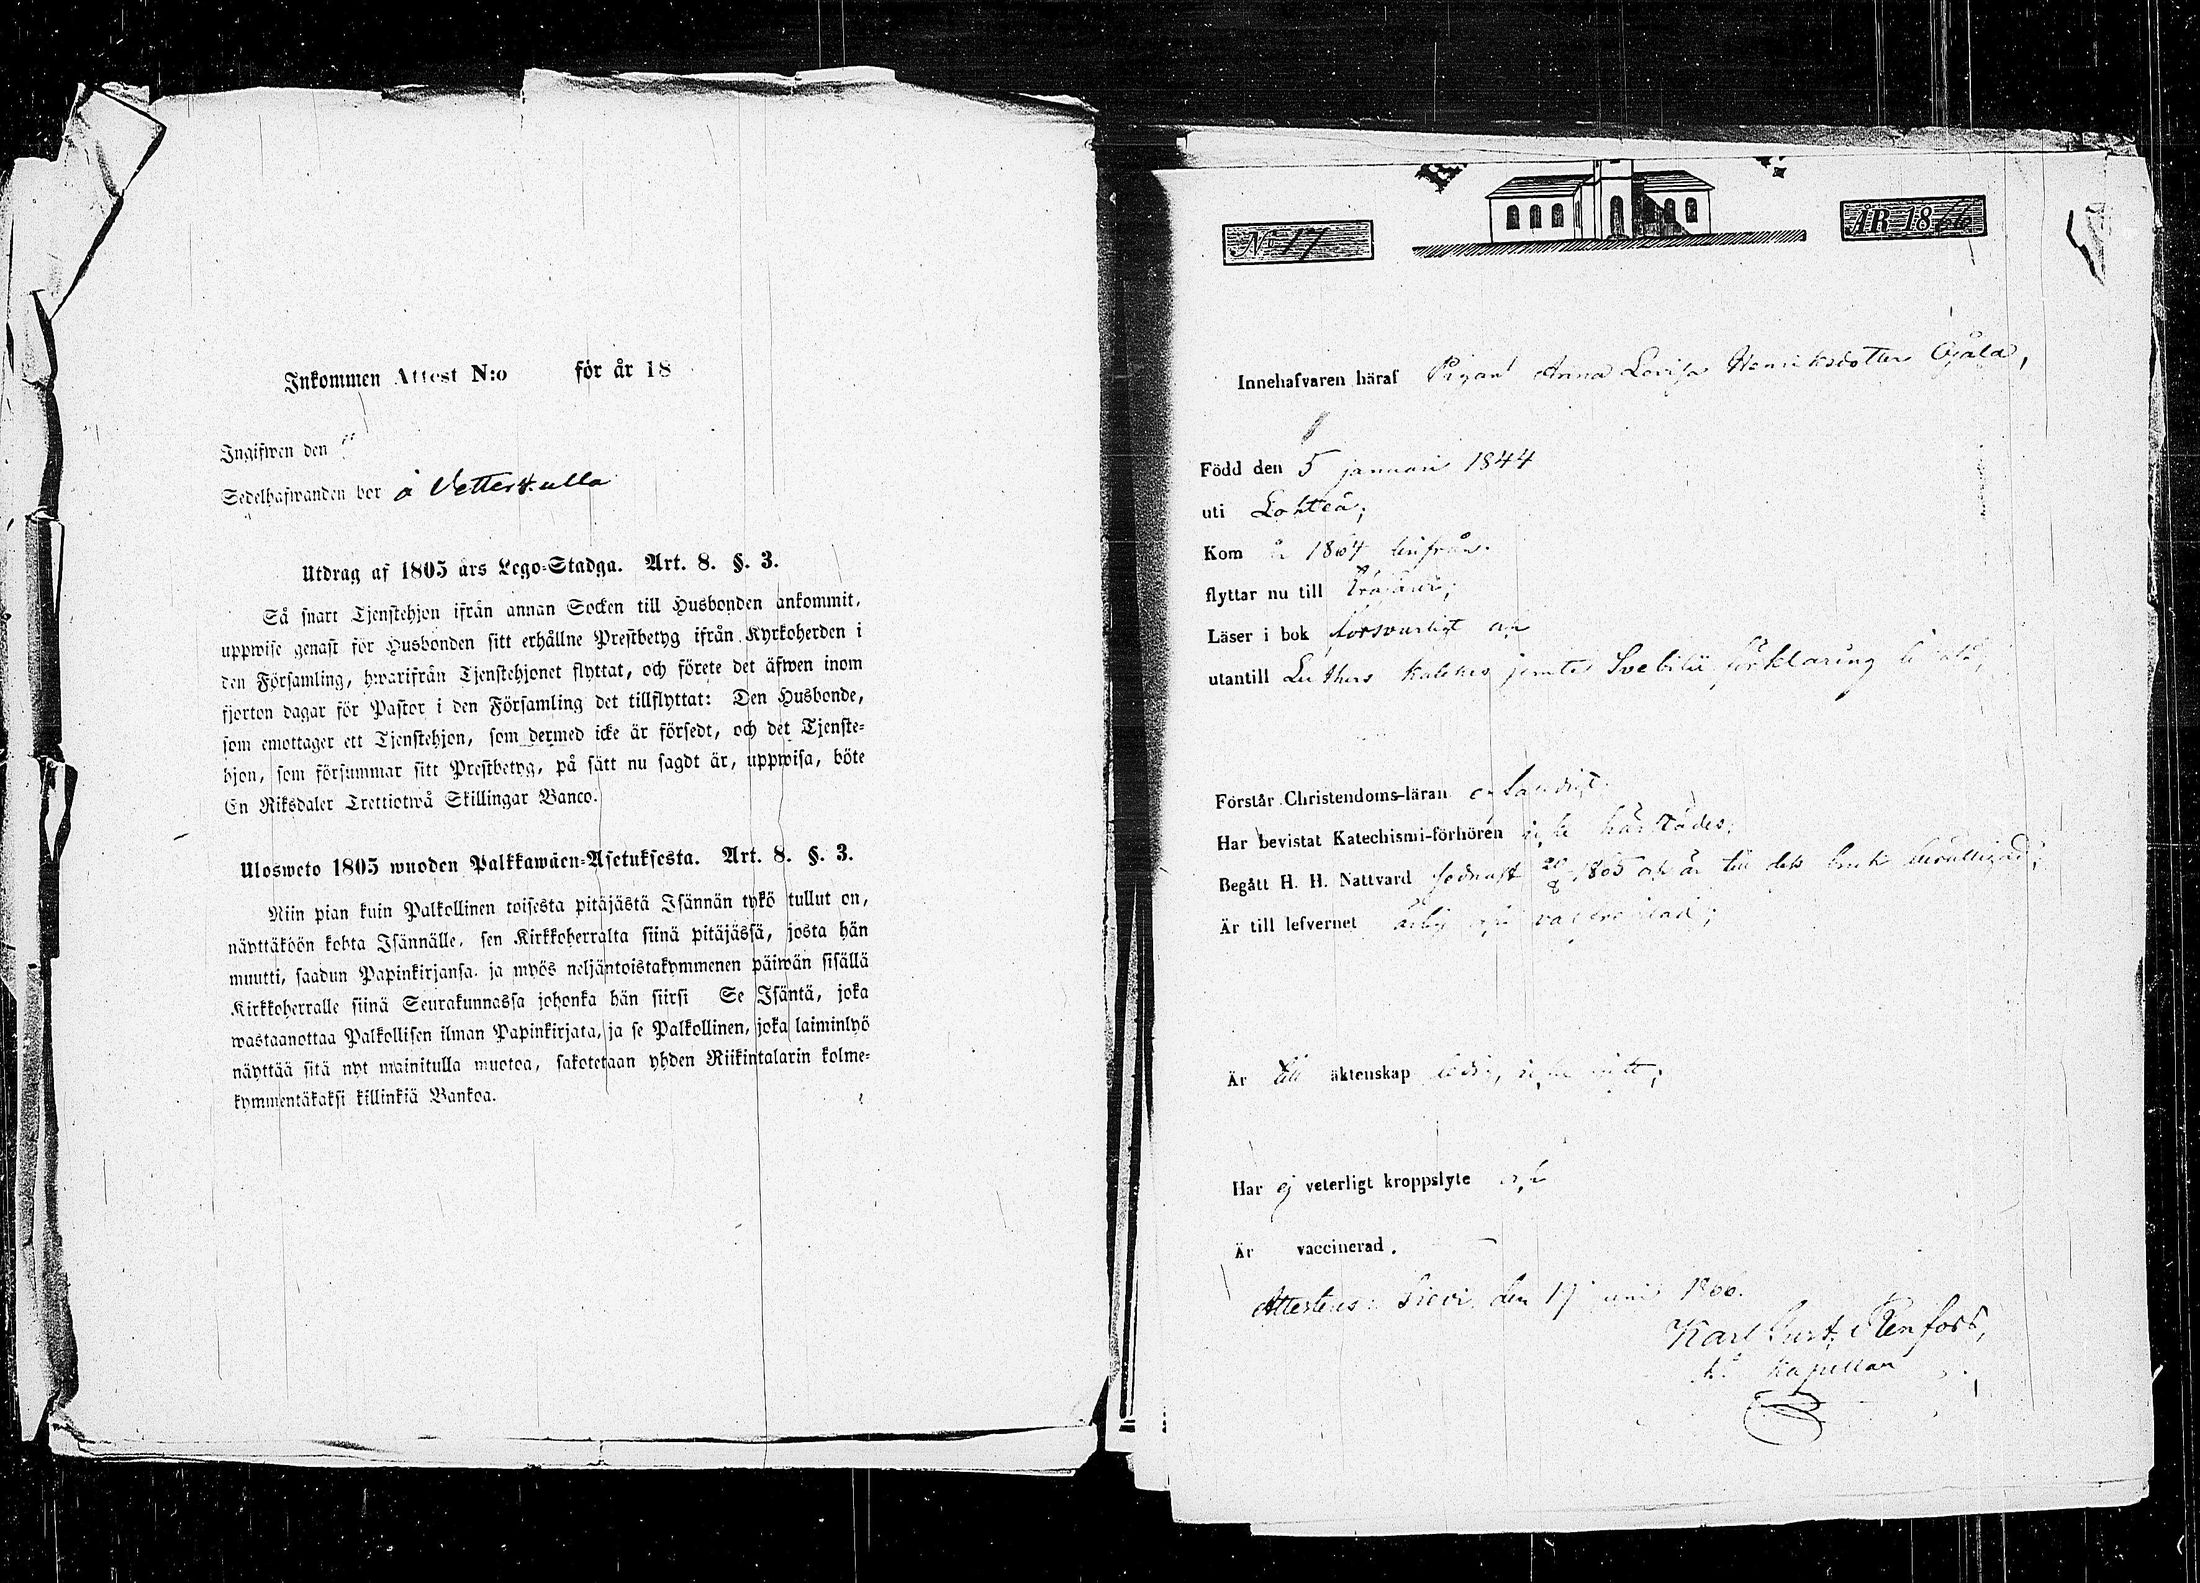 Inkommen Attest N:o för år 18
Ingifwen den
Sedelhafwanden bor å Vetterkulla
Utdrag af 1805 års Lego-Stadga. Art. 8. §. 3.
Så snart Tjenstehjon ifrån annan Socken till Husbonden ankommit,
uppwise genast för Husbonden sitt erhållne Prestbetyg ifrån Kyrkoherden i
den Församling, hwarifrån Tjenstehjonet flyttat, och förete det äfwen inom
fjorton dagar för Pastor i den Församling det tillflyttat: Den Husbonde,
som emottager ett Tjenstehjon, som dermed icke är försedt, och det Tjenste-
hjon, som försummar sitt Prestbetyg, på sätt nu sagdt är, uppwisa, böte
En Riksdaler Trettiotwå Skillingar Banco.
Ulosweto 1805 wuoden Palkkawäen-Asetuksesta. Art. 8. §. 3.
Niin pian kuin Palkollinen toisesta pitäjästä Isännän tykö tullut on,
näyttäköön kohta Isännälle, sen Kirkkoherralta siinä pitäjässä, josta hän
muutti, saadun Papinkirjansa, ja myös neljäntoistakymmenen päiwän sisällä
Kirkkoherralle siinä Seurakunnassa johonka hän siirsi Se Isäntä, joka
wastaanottaa Palkollisen ilman Papinkirjata, ja se Palkollinen, joka laiminlyö
näyttää sitä nyt mainitulla muotoa, sakotetaan yhden Riikintalarin kolme-
kymmentäkaksi killinkiä Bankoa.
No 17
ÅR 1866
Innehafvaren häraf Pigan Anna Lovisa Henriksdotter Ojala,
Född den 5 januari 1844
uti Lohteå;
Kom år 1864 
flyttar nu till
Läser i bok försvarligt och
utantill Luthers kateches jemte Svebilii förklaring
Förstår Christendoms-läran
Har bevistat Katechismi-förhören härstädes;
Begått H. H. Nattvard sednast 20/8 1865 och är till dess bruk
Är till lefvernet ärlig och
Är till äktenskap ledig, icke gift;
Har ej veterligt kroppslyte och
Är vaccinerad.
Attesteras: Sievi den 17 juni 1866.
Karl Stenfors,
Kapellan